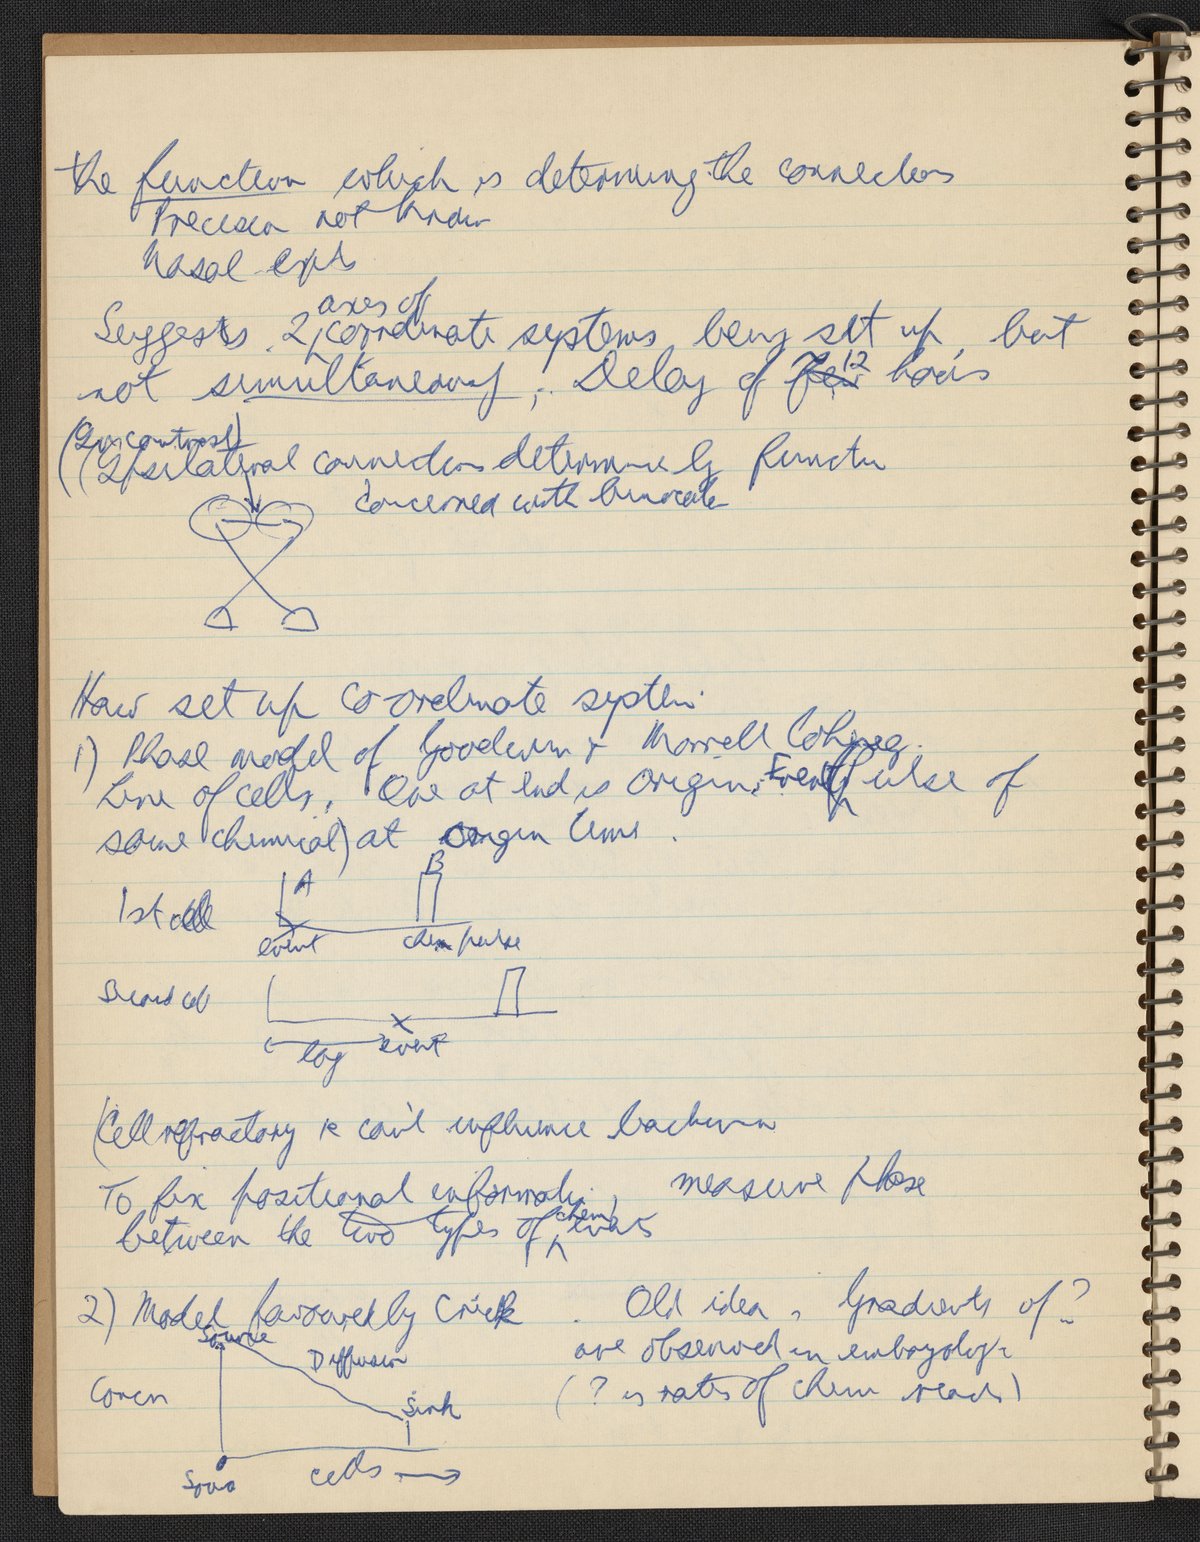 the function which is determining the connections
Precision not known
Nasal expts
axes of
Suggests 2 coordinate systems being set up, but
not simultaneously; Delay of 12 hours
(In contrast)
(Ipsilateral connections determined by function
concerned with binocular
How set up co-ordinate system
1) Phase model of Goodwin & Morrell Cohen
Line of cells. One at end is origin. Event (pulse of
some chemical) at origin time.
1st cell
A
B
event
chem pulse
Second cell
lag
event
(Cell refractory & can't influence backwards
To fix positional information, measure phase
between the two types of chem events
2) Model favoured by Crick. Old idea, Gradients of ?
are observed in embryology
(? is rates of chem reacts)
Source
Diffusion
Concn
Sink
cells